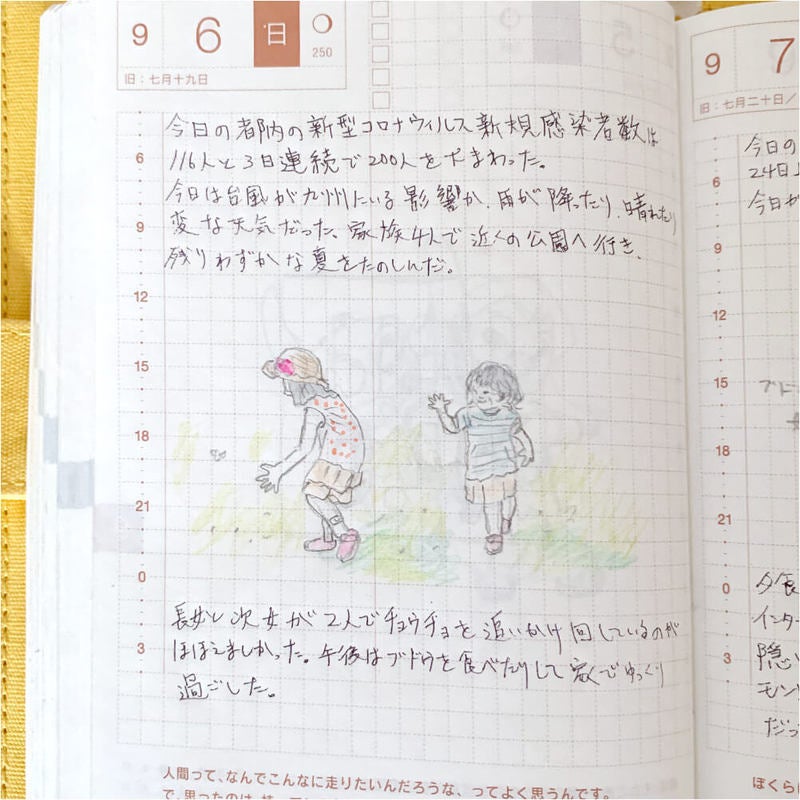 9 6 日 250
旧：七月十九日
今日の都内の新型コロナウィルス新規感染者数は
116人と3日連続で200人を下まわった。
今日は台風が九州にいる影響か、雨が降ったり、晴れたり
変な天気だった。家族4人で近くの公園へ行き、
残りわずかな夏をたのしんだ。
6
9
12
15
18
21
0
3
長女と次女が2人でチョウチョを追いかけ回しているのが
ほほえましかった。午後はブドウを食べたりして家でゆっくり
過ごした。
人間って、なんでこんなに走りたいんだろうな、ってよく思うんです。
9 7
旧：七月二十日／
今日の
24日
今日か
6
9
12
15
18
21
0
3
ブドー
夕食
インター
隠い
モン
だっ
ぼくら